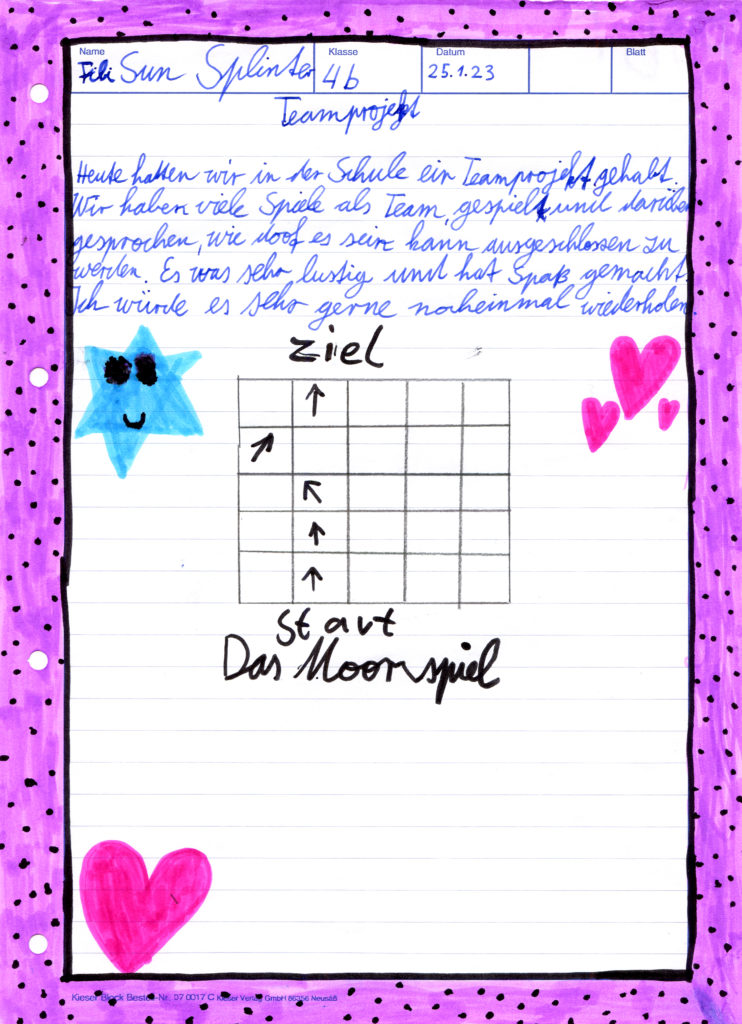 Name
Klasse
Datum
Blatt
Sun Splinter
4b
25.1.23
Teamprojekt
Heute hatten wir in der Schule ein Teamprojekt gehabt.
Wir haben viele Spiele als Team gespielt und darüber
gesprochen, wie doof es sein kann ausgeschlossen zu
werden. Es was sehr lustig und hat Spaß gemacht.
Ich würde es sehr gerne nocheinmal wiederholen.
Ziel
Start
Das Moorspiel
Kieser Block Bestell-Nr. 07 0017 C Kieser Verlag GmbH 86356 Neusäß